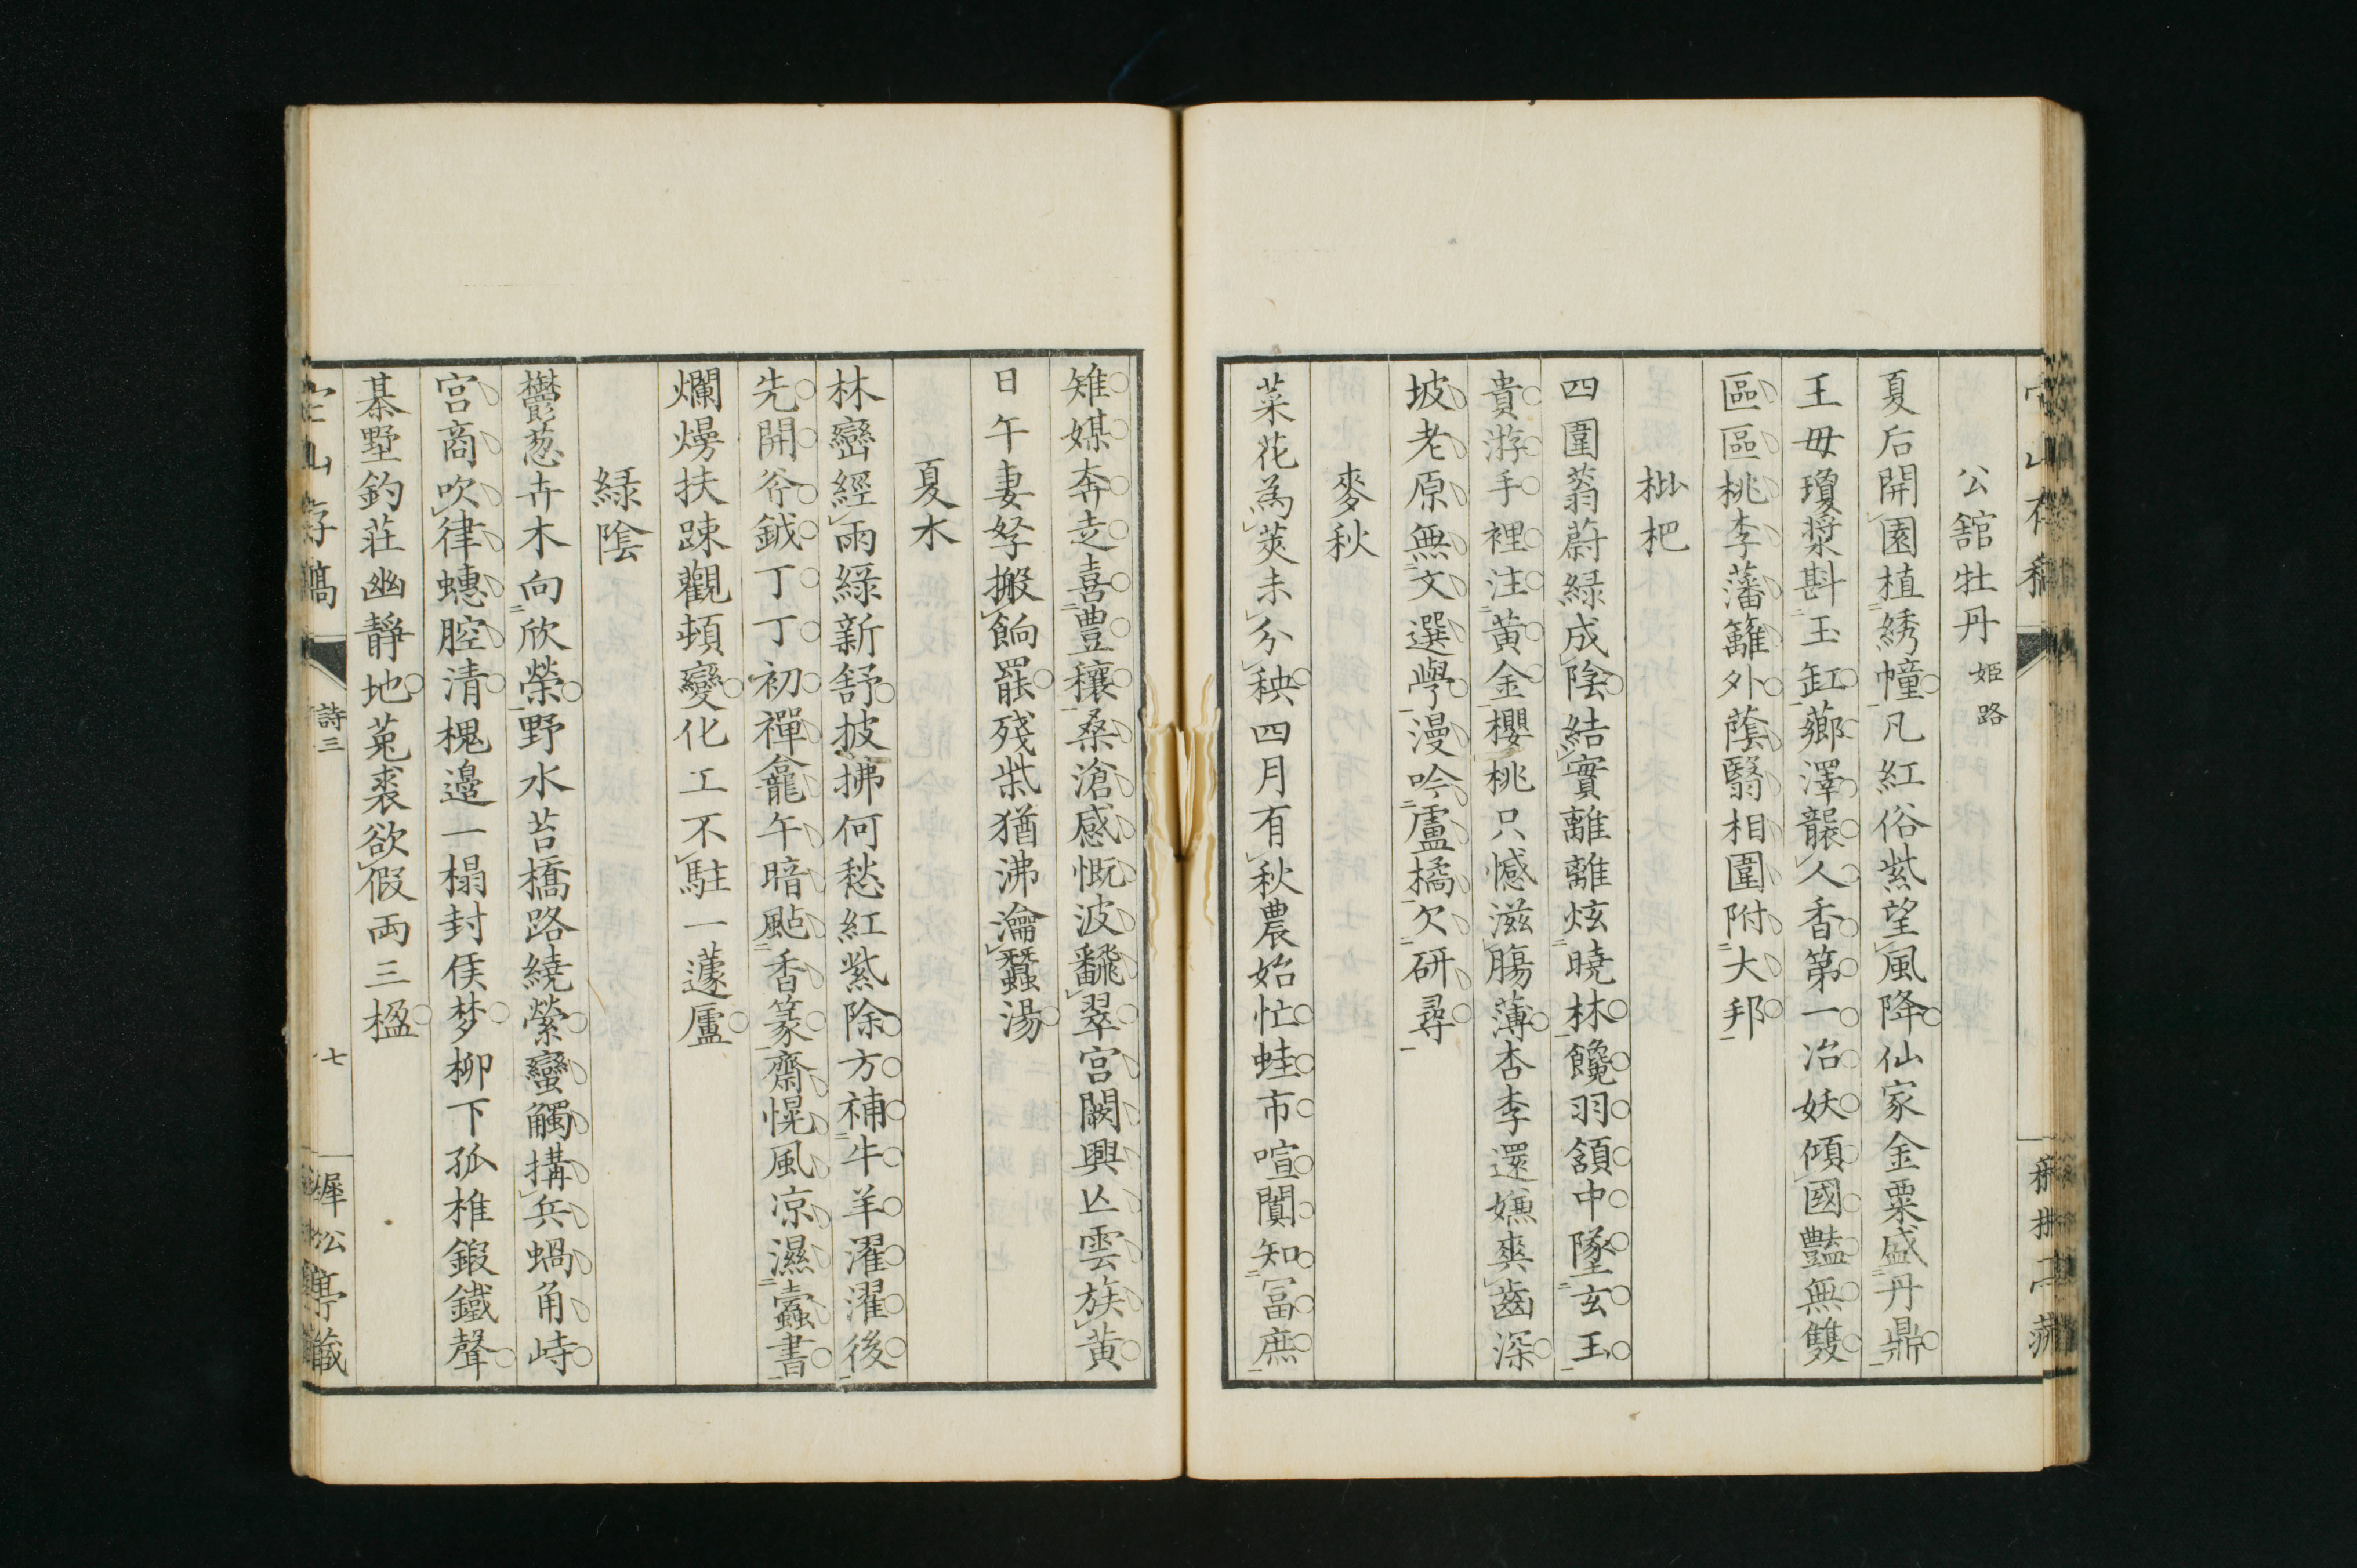 公舘牡丹 姫路
夏后開園植綉幢凡紅俗紫望風降仙家金粟盛丹鼎
王毋瓊漿斟玉缸薌澤襲人香第一冶妖傾國豔無雙
區區桃李藩籬外蔭翳相圍附大邦
枇杷
四圍蓊蔚緑成陰結實離離炫曉林饞羽頷中墜玄玉
貴游手裡注黄金櫻桃只憾滋膓薄杏李還嫌爽齒深
坡老原無文選學漫吟盧橘欠研尋
麥秋
菜花為莢未分秧四月有秋農始忙蛙市喧闐知冨庶
雉媒奔走喜豊穰桑滄感慨波飜翠宮闕興亾雲族黄
日午妻孥搬餉罷殘柴猶沸瀹蠶湯
夏木
林巒經雨緑新舒披拂何愁紅紫除方補牛羊濯濯後
先開斧鉞丁丁初禪龕午暗颭香篆齋幌風凉濕蠹書
爛熳扶踈觀頓變化工不駐一蘧廬
緑陰
鬱葱卉木向欣榮野水苔橋路繞縈蠻觸搆兵蝸角峙
宮商吹律蟪腔清槐邉一榻封侯梦柳下孤椎鍜鐵聲
棊墅釣莊幽靜地菟裘欲假両三楹
詩三
七
墀松亭藏